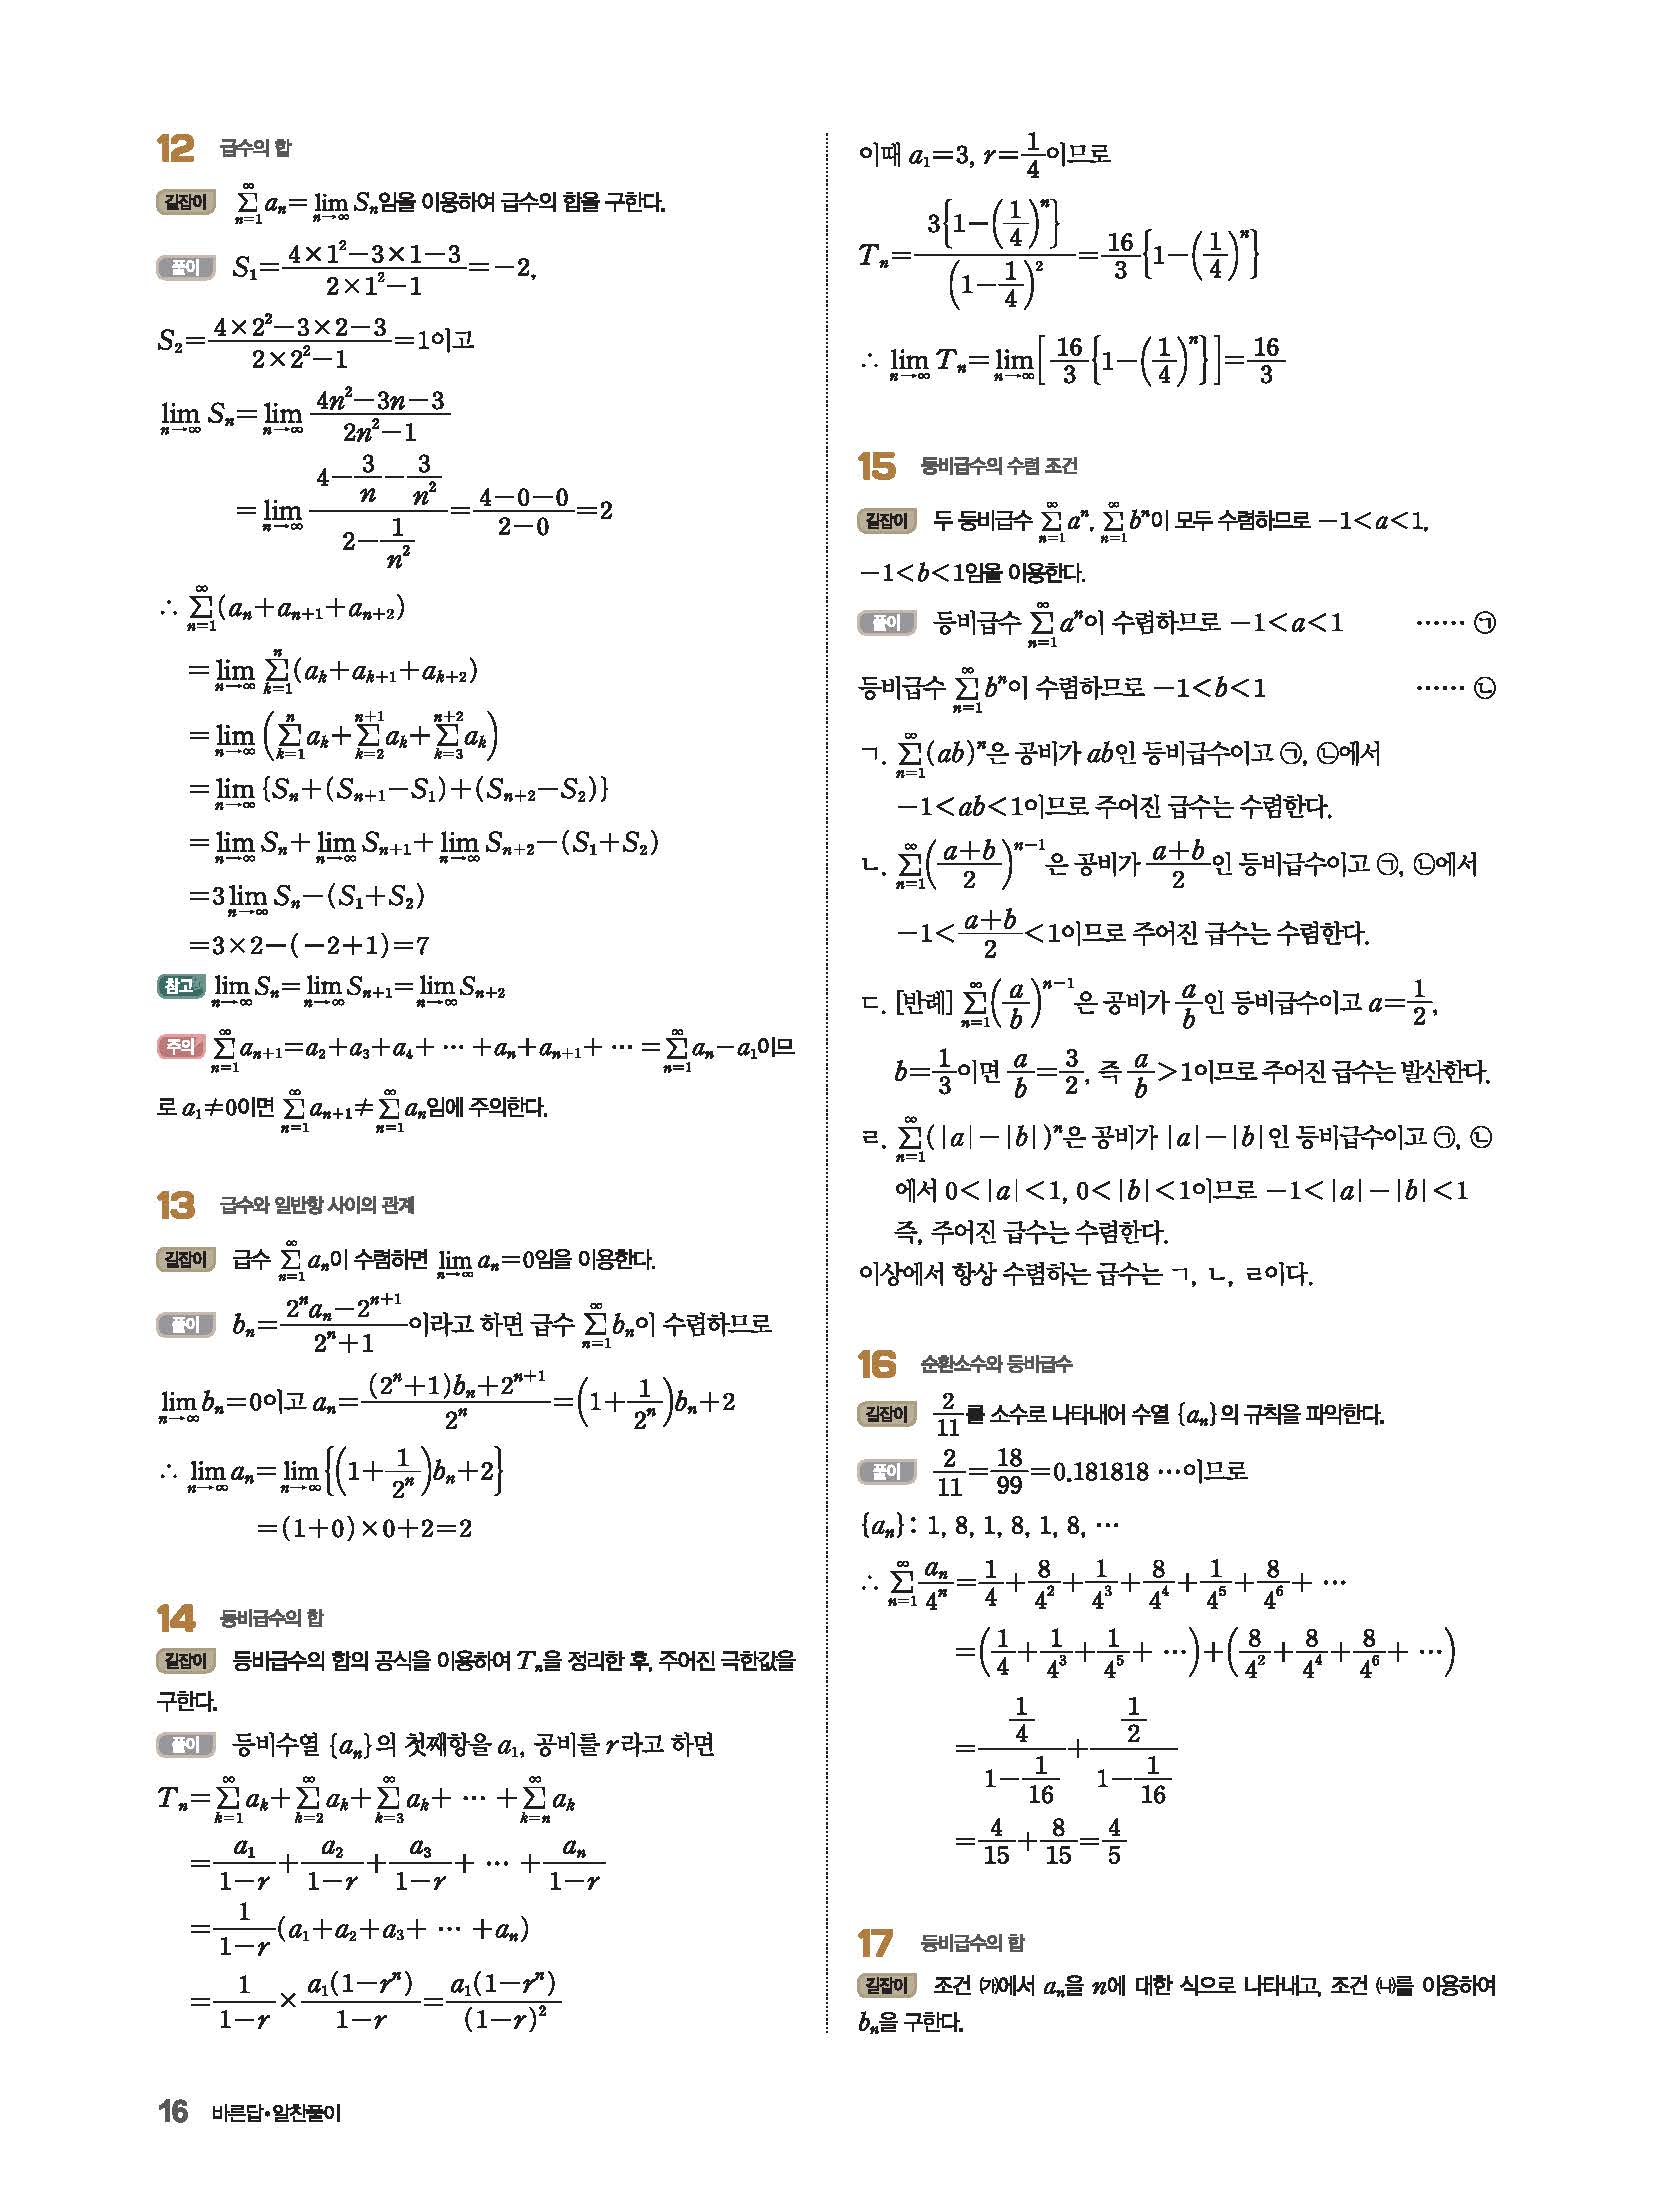 12 급수의 합
길잡이 $\sum_{n=1}^{\infty} a_n=\lim_{n\to\infty} S_n$임을 이용하여 급수의 합을 구한다.
풀이 $S_1=\frac{4\times1^2-3\times1-3}{2\times1^2-1}=-2,$
$S_2=\frac{4\times2^2-3\times2-3}{2\times2^2-1}=1$이고
$\lim_{n\to\infty} S_n=\lim_{n\to\infty}\frac{4n^2-3n-3}{2n^2-1}$
$=\lim_{n\to\infty}\frac{4-\frac{3}{n}-\frac{3}{n^2}}{2-\frac{1}{n^2}}=\frac{4-0-0}{2-0}=2$
$\therefore \sum_{n=1}^{\infty}(a_n+a_{n+1}+a_{n+2})$
$=\lim_{n\to\infty}\sum_{k=1}^{n}(a_k+a_{k+1}+a_{k+2})$
$=\lim_{n\to\infty}\left(\sum_{k=1}^{n}a_k+\sum_{k=2}^{n+1}a_k+\sum_{k=3}^{n+2}a_k\right)$
$=\lim_{n\to\infty}\{S_n+(S_{n+1}-S_1)+(S_{n+2}-S_2)\}$
$=\lim_{n\to\infty}S_n+\lim_{n\to\infty}S_{n+1}+\lim_{n\to\infty}S_{n+2}-(S_1+S_2)$
$=3\lim_{n\to\infty}S_n-(S_1+S_2)$
$=3\times2-(-2+1)=7$
참고 $\lim_{n\to\infty}S_n=\lim_{n\to\infty}S_{n+1}=\lim_{n\to\infty}S_{n+2}$
주의 $\sum_{n=1}^{\infty}a_{n+1}=a_2+a_3+a_4+\cdots+a_n+a_{n+1}+\cdots=\sum_{n=1}^{\infty}a_n-a_1$이므
로 $a_1\neq0$이면 $\sum_{n=1}^{\infty}a_{n+1}\neq\sum_{n=1}^{\infty}a_n$임에 주의한다.
13 급수와 일반항 사이의 관계
길잡이 급수 $\sum_{n=1}^{\infty}a_n$이 수렴하면 $\lim_{n\to\infty}a_n=0$임을 이용한다.
풀이 $b_n=\frac{2^na_n-2^{n+1}}{2^n+1}$이라고 하면 급수 $\sum_{n=1}^{\infty}b_n$이 수렴하므로
$\lim_{n\to\infty}b_n=0$이고 $a_n=\frac{(2^n+1)b_n+2^{n+1}}{2^n}=\left(1+\frac{1}{2^n}\right)b_n+2$
$\therefore \lim_{n\to\infty}a_n=\lim_{n\to\infty}\left\{\left(1+\frac{1}{2^n}\right)b_n+2\right\}$
$=(1+0)\times0+2=2$
14 등비급수의 합
길잡이 등비급수의 합의 공식을 이용하여 $T_n$을 정리한 후, 주어진 극한값을
구한다.
풀이 등비수열 $\{a_n\}$의 첫째항을 $a_1$, 공비를 $r$라고 하면
$T_n=\sum_{k=1}^{\infty}a_k+\sum_{k=2}^{\infty}a_k+\sum_{k=3}^{\infty}a_k+\cdots+\sum_{k=n}^{\infty}a_k$
$=\frac{a_1}{1-r}+\frac{a_2}{1-r}+\frac{a_3}{1-r}+\cdots+\frac{a_n}{1-r}$
$=\frac{1}{1-r}(a_1+a_2+a_3+\cdots+a_n)$
$=\frac{1}{1-r}\times\frac{a_1(1-r^n)}{1-r}=\frac{a_1(1-r^n)}{(1-r)^2}$
이때 $a_1=3, r=\frac{1}{4}$이므로
$T_n=\frac{3\left\{1-\left(\frac{1}{4}\right)^n\right\}}{\left(1-\frac{1}{4}\right)^2}=\frac{16}{3}\left\{1-\left(\frac{1}{4}\right)^n\right\}$
$\therefore \lim_{n\to\infty}T_n=\lim_{n\to\infty}\left[\frac{16}{3}\left\{1-\left(\frac{1}{4}\right)^n\right\}\right]=\frac{16}{3}$
15 등비급수의 수렴 조건
길잡이 두 등비급수 $\sum_{n=1}^{\infty}a^n, \sum_{n=1}^{\infty}b^n$이 모두 수렴하므로 $-1<a<1,$
$-1<b<1$임을 이용한다.
풀이 등비급수 $\sum_{n=1}^{\infty}a^n$이 수렴하므로 $-1<a<1$ …… ㉠
등비급수 $\sum_{n=1}^{\infty}b^n$이 수렴하므로 $-1<b<1$ …… ㉡
ㄱ. $\sum_{n=1}^{\infty}(ab)^n$은 공비가 $ab$인 등비급수이고 ㉠, ㉡에서
$-1<ab<1$이므로 주어진 급수는 수렴한다.
ㄴ. $\sum_{n=1}^{\infty}\left(\frac{a+b}{2}\right)^{n-1}$은 공비가 $\frac{a+b}{2}$인 등비급수이고 ㉠, ㉡에서
$-1<\frac{a+b}{2}<1$이므로 주어진 급수는 수렴한다.
ㄷ. [반례] $\sum_{n=1}^{\infty}\left(\frac{a}{b}\right)^{n-1}$은 공비가 $\frac{a}{b}$인 등비급수이고 $a=\frac{1}{2},$
$b=\frac{1}{3}$이면 $\frac{a}{b}=\frac{3}{2}$, 즉 $\frac{a}{b}>1$이므로 주어진 급수는 발산한다.
ㄹ. $\sum_{n=1}^{\infty}(|a|-|b|)^n$은 공비가 $|a|-|b|$인 등비급수이고 ㉠, ㉡
에서 $0<|a|<1, 0<|b|<1$이므로 $-1<|a|-|b|<1$
즉, 주어진 급수는 수렴한다.
이상에서 항상 수렴하는 급수는 ㄱ, ㄴ, ㄹ이다.
16 순환소수와 등비급수
길잡이 $\frac{2}{11}$를 소수로 나타내어 수열 $\{a_n\}$의 규칙을 파악한다.
풀이 $\frac{2}{11}=\frac{18}{99}=0.181818\cdots$이므로
$\{a_n\}$: 1, 8, 1, 8, 1, 8, …
$\therefore \sum_{n=1}^{\infty}\frac{a_n}{4^n}=\frac{1}{4}+\frac{8}{4^2}+\frac{1}{4^3}+\frac{8}{4^4}+\frac{1}{4^5}+\frac{8}{4^6}+\cdots$
$=\left(\frac{1}{4}+\frac{1}{4^3}+\frac{1}{4^5}+\cdots\right)+\left(\frac{8}{4^2}+\frac{8}{4^4}+\frac{8}{4^6}+\cdots\right)$
$=\frac{\frac{1}{4}}{1-\frac{1}{16}}+\frac{\frac{1}{2}}{1-\frac{1}{16}}$
$=\frac{4}{15}+\frac{8}{15}=\frac{4}{5}$
17 등비급수의 합
길잡이 조건 ㈎에서 $a_n$을 $n$에 대한 식으로 나타내고, 조건 ㈏를 이용하여
$b_n$을 구한다.
16 바른답•알찬풀이